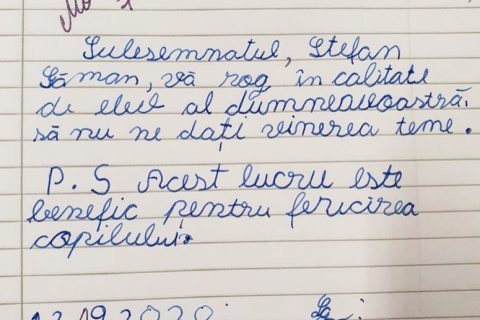 Sulesemnatul, Stefan
Găman, vă rog în calitate
de elev al dumneavoastră,
să nu ne dați vinerea teme.
P. S Acest lucru este
benefic pentru fericirea
copilului.